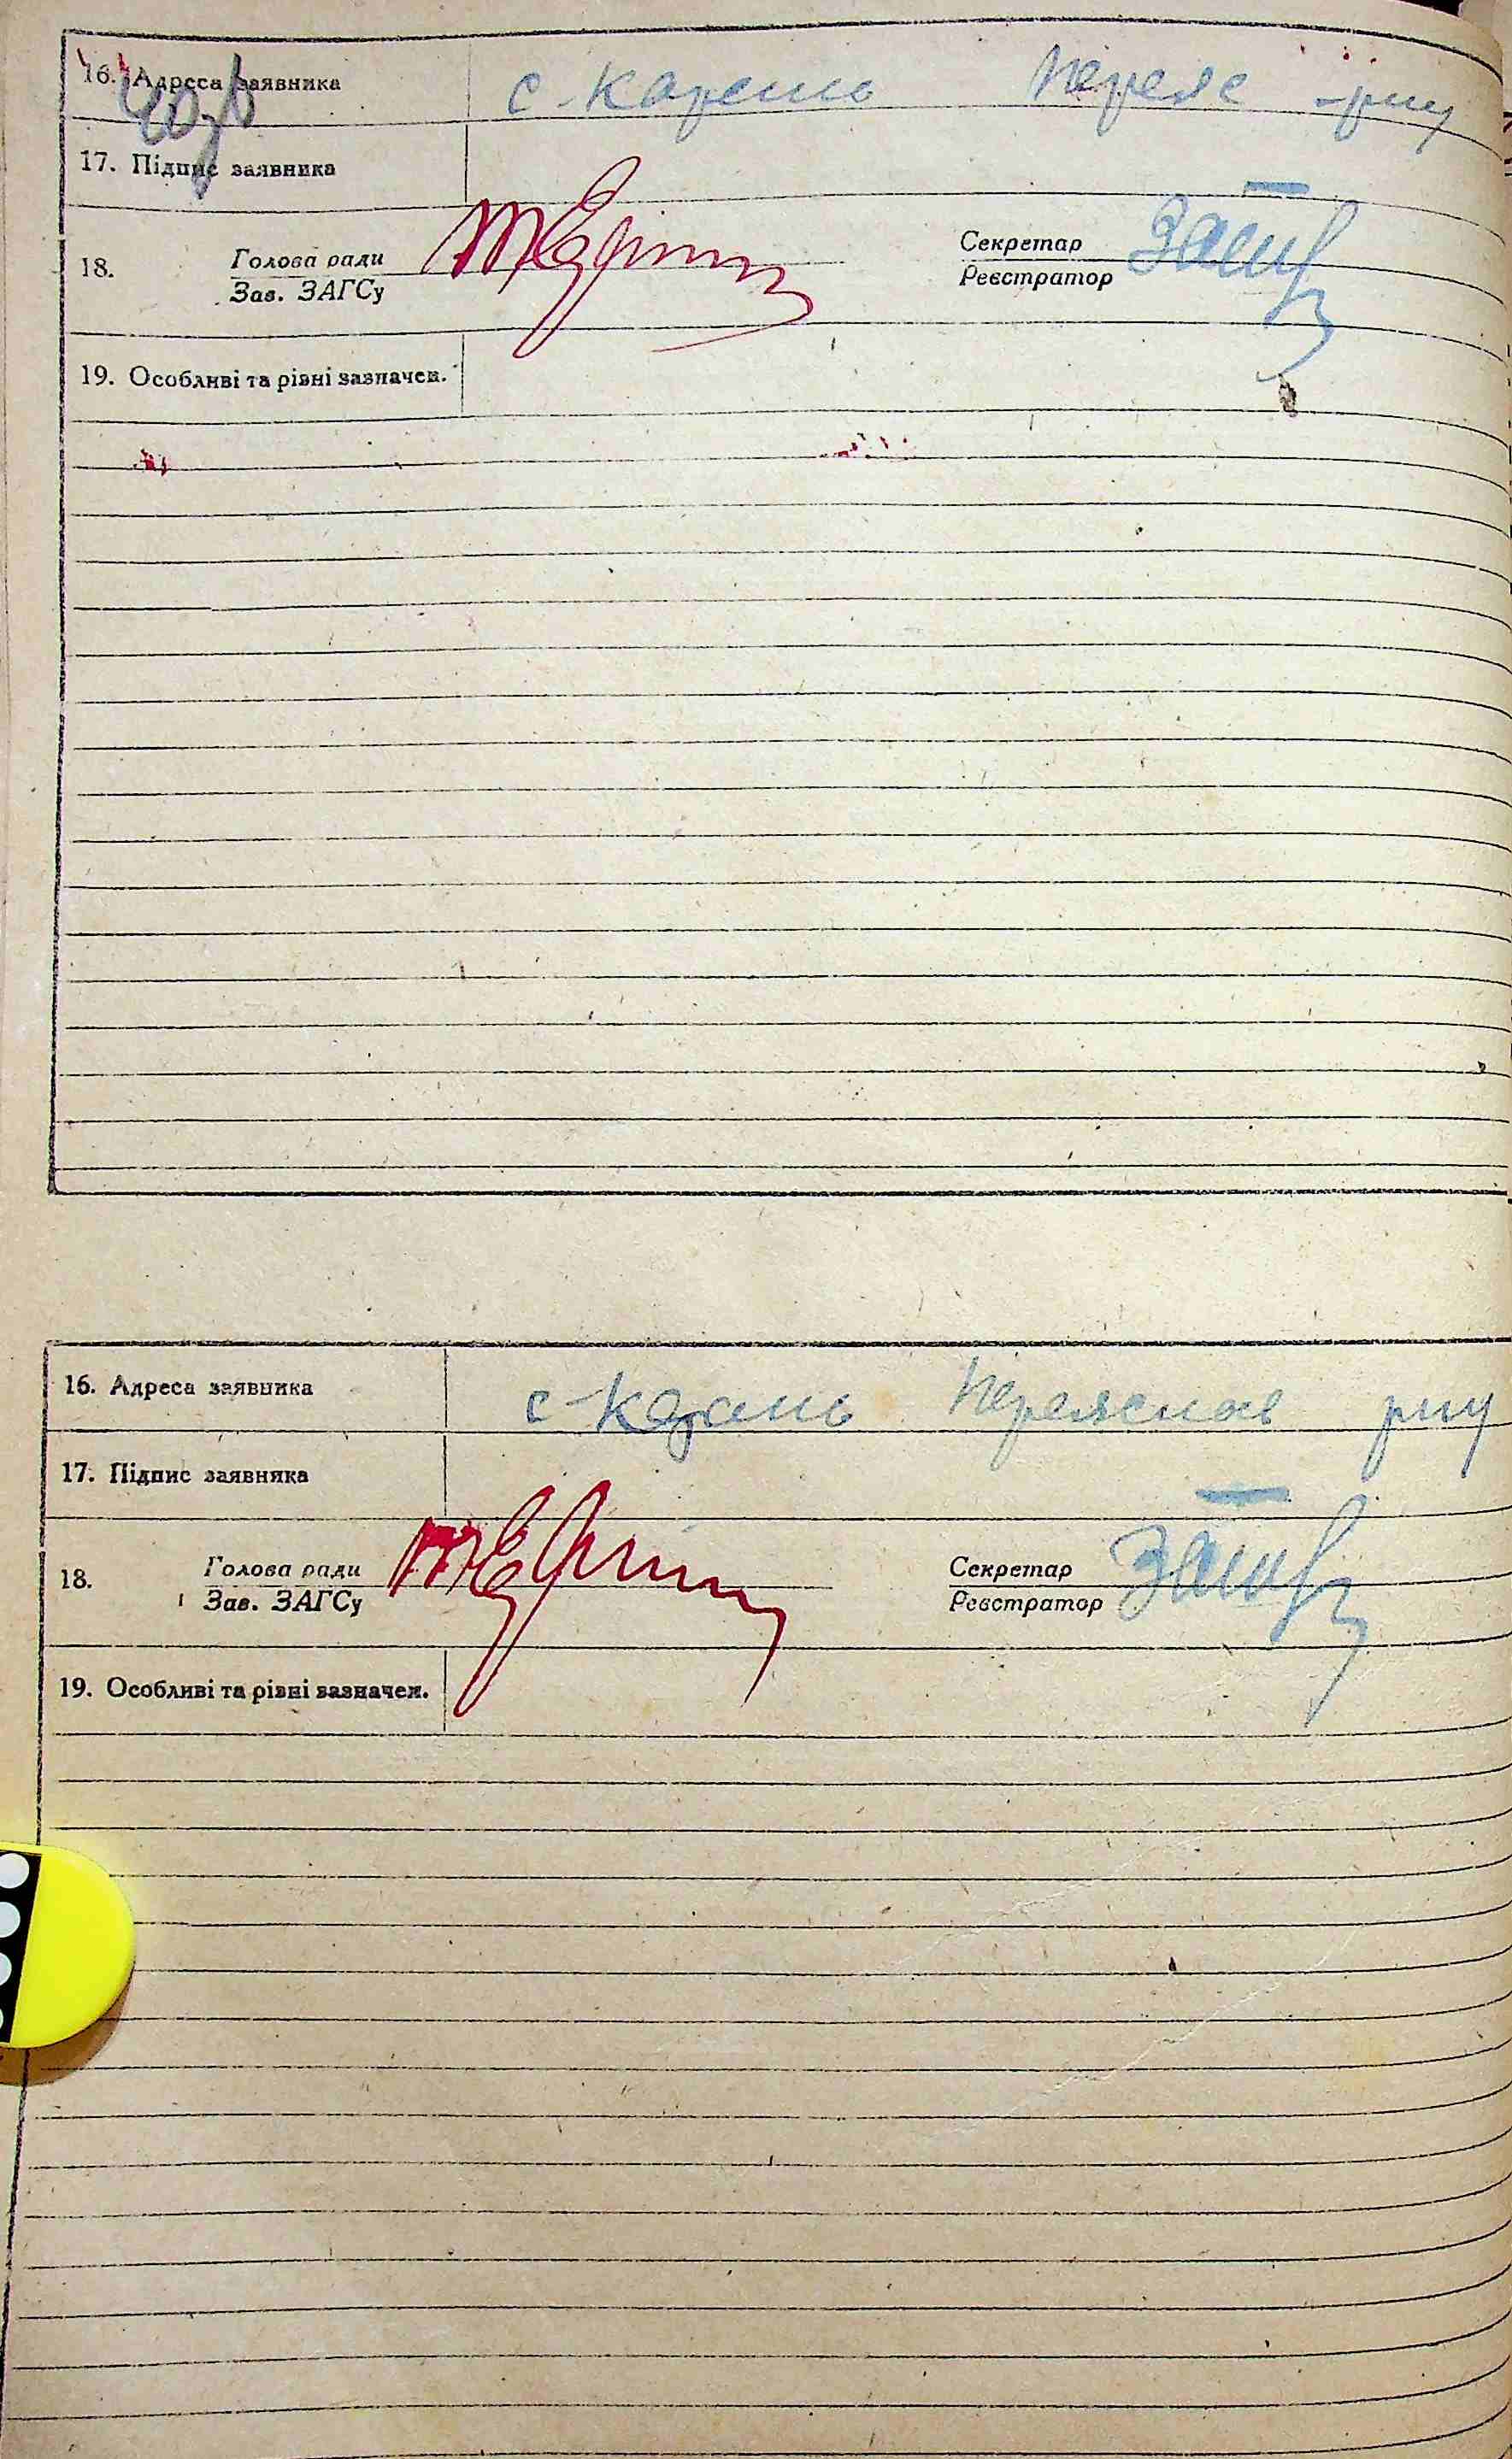 16. Адреса заявника с-Карань Переяс -рну
17. Підпис заявника
18. Голова ради Секретар
Зав. ЗАГСу Реєстратор
19. Особливі та різні зазначен.
16. Адреса заявника с-Карань Переяслав рну
17. Підпис заявника
18. Голова ради Секретар
Зав. ЗАГСу Реєстратор
19. Особливі та різні зазначен.